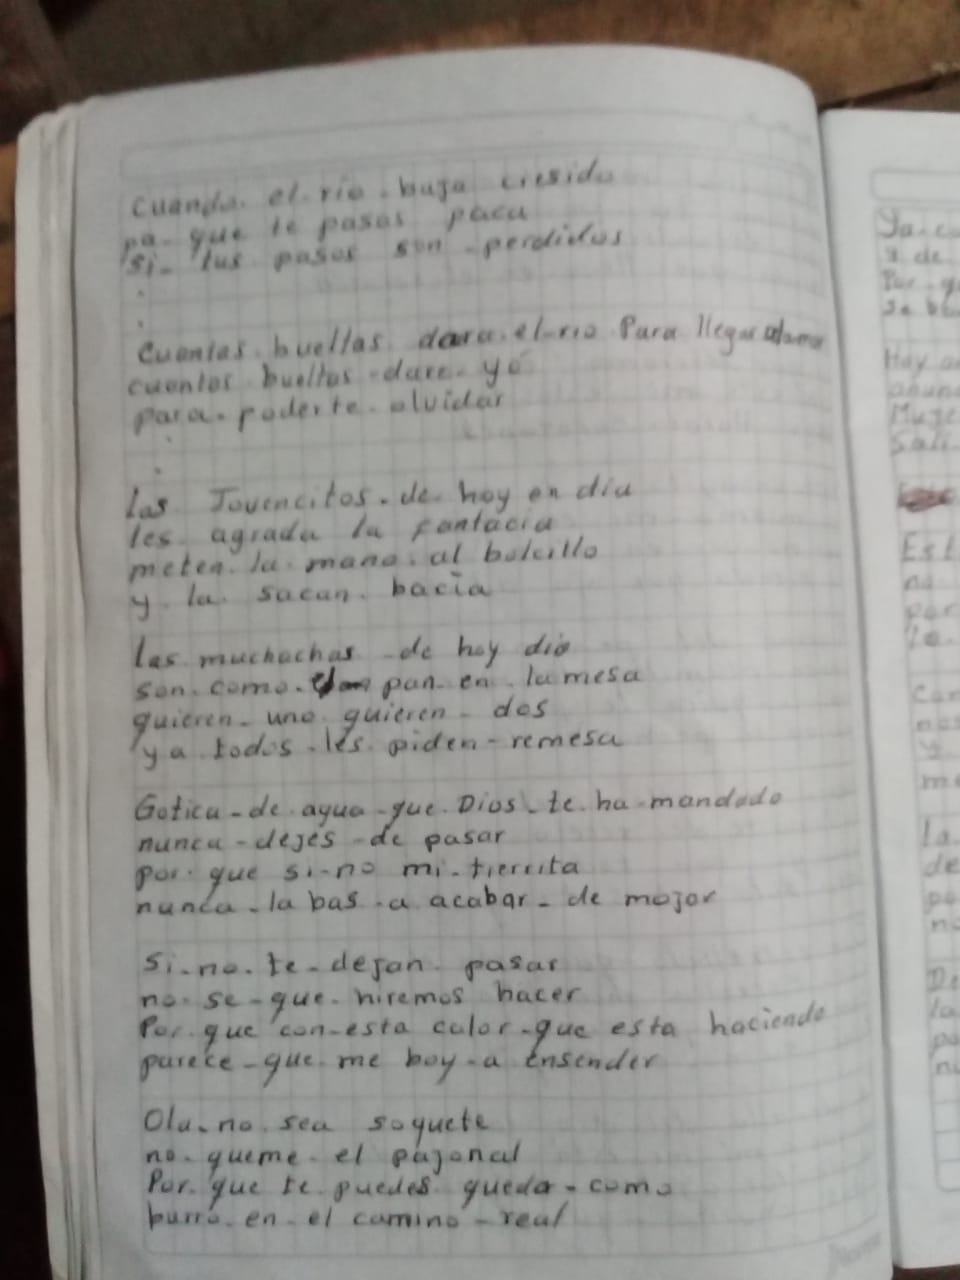 Cuando el rio baja cresido
pa que te pasas paca
si tus pasos son perdidos
Cuantas buellas dara el rio Para llegar
cuantas bueltas dare yo
para poderte olvidar
Los Jovencitos de hoy en dia
les agrada la fantacia
meten la mano al bolcillo
y la sacan bacia
las muchachas de hoy dia
son como pan en la mesa
quieren uno quieren dos
y a todos les piden remesa
Gotica de agua que Dios te ha mandado
nunca dejes de pasar
por que si no mi tierrita
nunca la bas a acabar de mojar
Si no te dejan pasar
no se que hiremos hacer
Por que con esta calor que esta haciendo
parece que me boy a ensender
Ola no sea soquete
no queme el pajonal
Por que te puedes queda como
burro en el camino real
Ya
y de
Por
se
Hay
Muje
Sali
Est
no
par
la